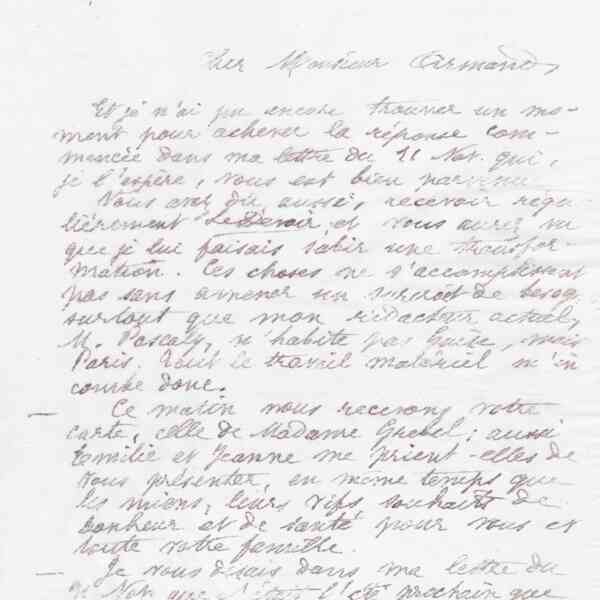 Cher Monsieur Armand,
Et je n'ai pu encore trouver un mo-
ment pour achever la réponse com-
mencée dans ma lettre du 21 Nov. qui,
je l'espère, vous est bien parvenu
Vous avez dû, aussi, recevoir régu-
lièrement "Le Devoir, et vous aurez vu
que je lui faisais subir une transfor-
mation. Ces choses ne s'accomplissent
pas sans amener un surcroît de besog.
surtout que mon rédacteur actuel,
M. Pascaly, n'habite pas Guise, mais
Paris. Tout le travail matériel m'in
combe donc.
Ce matin nous recevons votre
carte, celle de Madame; aussi
Emilie et Jeanne me prient-elles de
vous présenter, en même temps que
les miens, leurs vifs souhaits de
bonheur et de santé, pour vous et
toute votre famille.
Je vous disais dans ma lettre du
21 Nov. que l'été prochain que